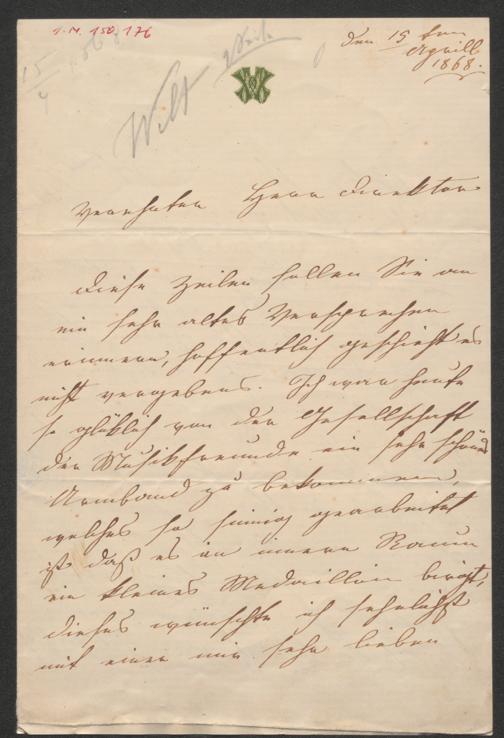 I.N. 150.176
15/4 1868
Wilt
den 15ten
Aprill
1868.
Verehrter Herr Direktor
Diese Zeilen sollen Sie an
ein sehr altes Versprechen
erinnern, hoffentlich geschieht es
nicht vergebens. Ich war heute
so glüklich von der Gesellschaft
der Musikfreunde ein sehr schönes
Armband zu bekommen,
welches so sinnig gearbeitet
ist daß es im innern Raum
ein kleines Medaillon birgt,
dieses wünschte ich sehnlichst
mit einer mir sehr lieben